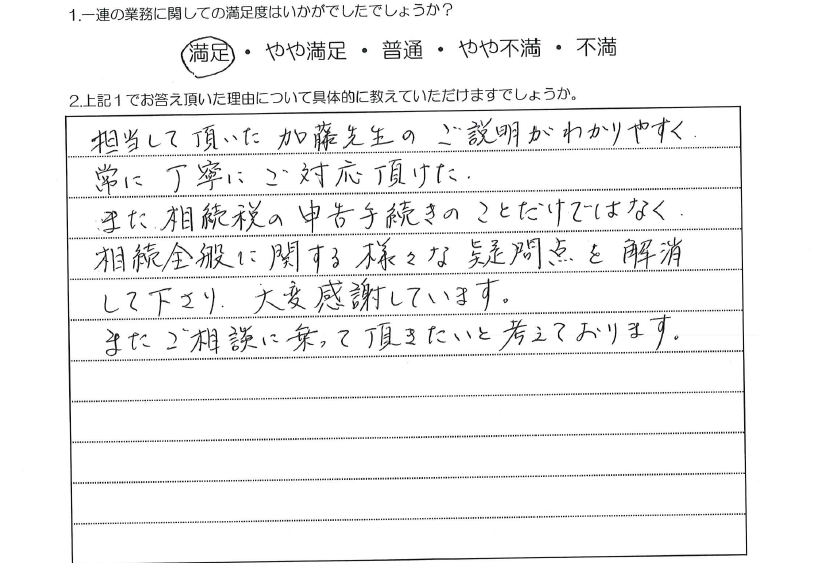 1.一連の業務に関しての満足度はいかがでしたでしょうか？
満足 ・ やや満足 ・ 普通 ・ やや不満 ・ 不満
2.上記１でお答え頂いた理由について具体的に教えていただけますでしょうか。
担当して頂いた 加藤先生の ご説明がわかりやすく、
常に 丁寧に ご対応頂けた。
また 相続税の 申告手続きの ことだけではなく、
相続全般に関する様々な 疑問点を 解消
して下さり、大変感謝しています。
また ご相談に乗って頂きたいと考えております。